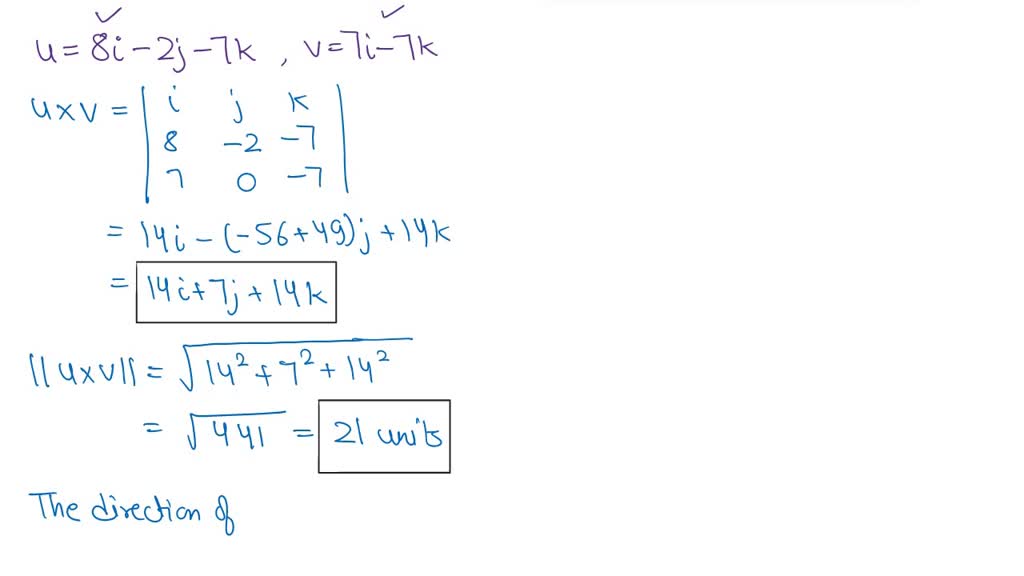 u = 8i - 2j - 7k , v = 7i - 7k
u x v = | i j k |
| 8 -2 -7 |
| 7 0 -7 |
= 14i - (-56+49)j + 14k
= 14i + 7j + 14k
||u x v|| = √14² + 7² + 14²
= √441 = 21 units
The direction of